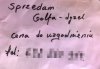 Sprzedam
Golfa - dyzel
cena do uzgodnienia
tel: